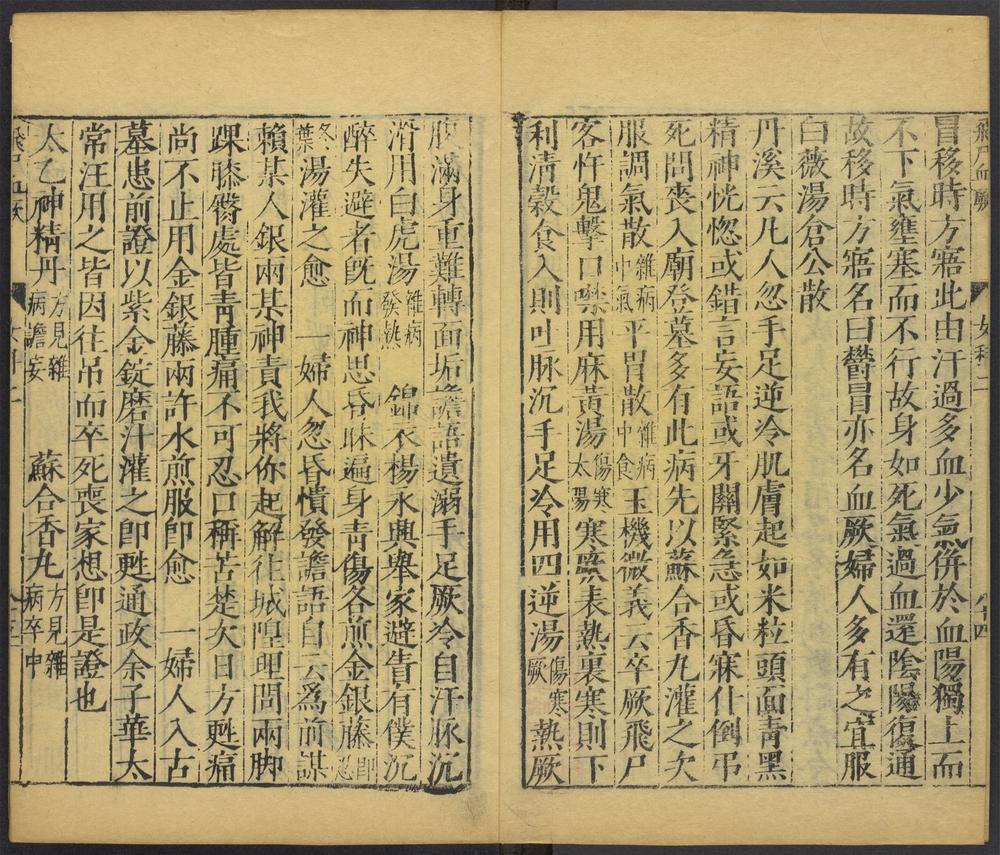 冒移時方寤此由汗過多血少氣併於血陽獨上而
不下氣壅塞而不行故身如死氣過血還陰陽復通
故移時方寤名曰鬱冒亦名血厥婦人多有之宜服
白薇湯倉公散
丹溪云凡人忽手足逆冷肌膚起如米粒頭面青黑
精神恍惚或錯言妄語或牙關緊急或昏寐什倒弔
死問喪入廟登墓多有此病先以蘇合香丸灌之次
服調氣散雜病中氣平胃散雜病中食玉機微義云卒厥飛尸
客忤鬼擊口噤用麻黃湯傷寒太陽寒厥表熱裏寒則下
利清穀食入則吐脉沉手足冷用四逆湯傷寒厥熱厥
腹滿身重難轉面垢譫語遺溺手足厥冷自汗脉沉
滑用白虎湯雜病發熱 錦衣楊永興舉家避眚有僕沉
醉失避者既而神思昏昧遍身青傷各煎金銀藤即忍
冬葉湯灌之愈 一婦人忽昏憒發譫語自云爲前謀
賴某人銀兩某神責我將你起解往城隍理問兩脚
踝膝臀處皆青腫痛不可忍口稱苦楚次日方甦痛
尚不止用金銀藤兩許水煎服即愈 一婦人入古
墓患前證以紫金錠磨汁灌之即甦通政余子華太
常汪用之皆因往吊而卒死喪家想即是證也
太乙神精丹方見雜病譫妄 蘇合香丸方見雜病卒中
飛尸血厥 女科二 八十四